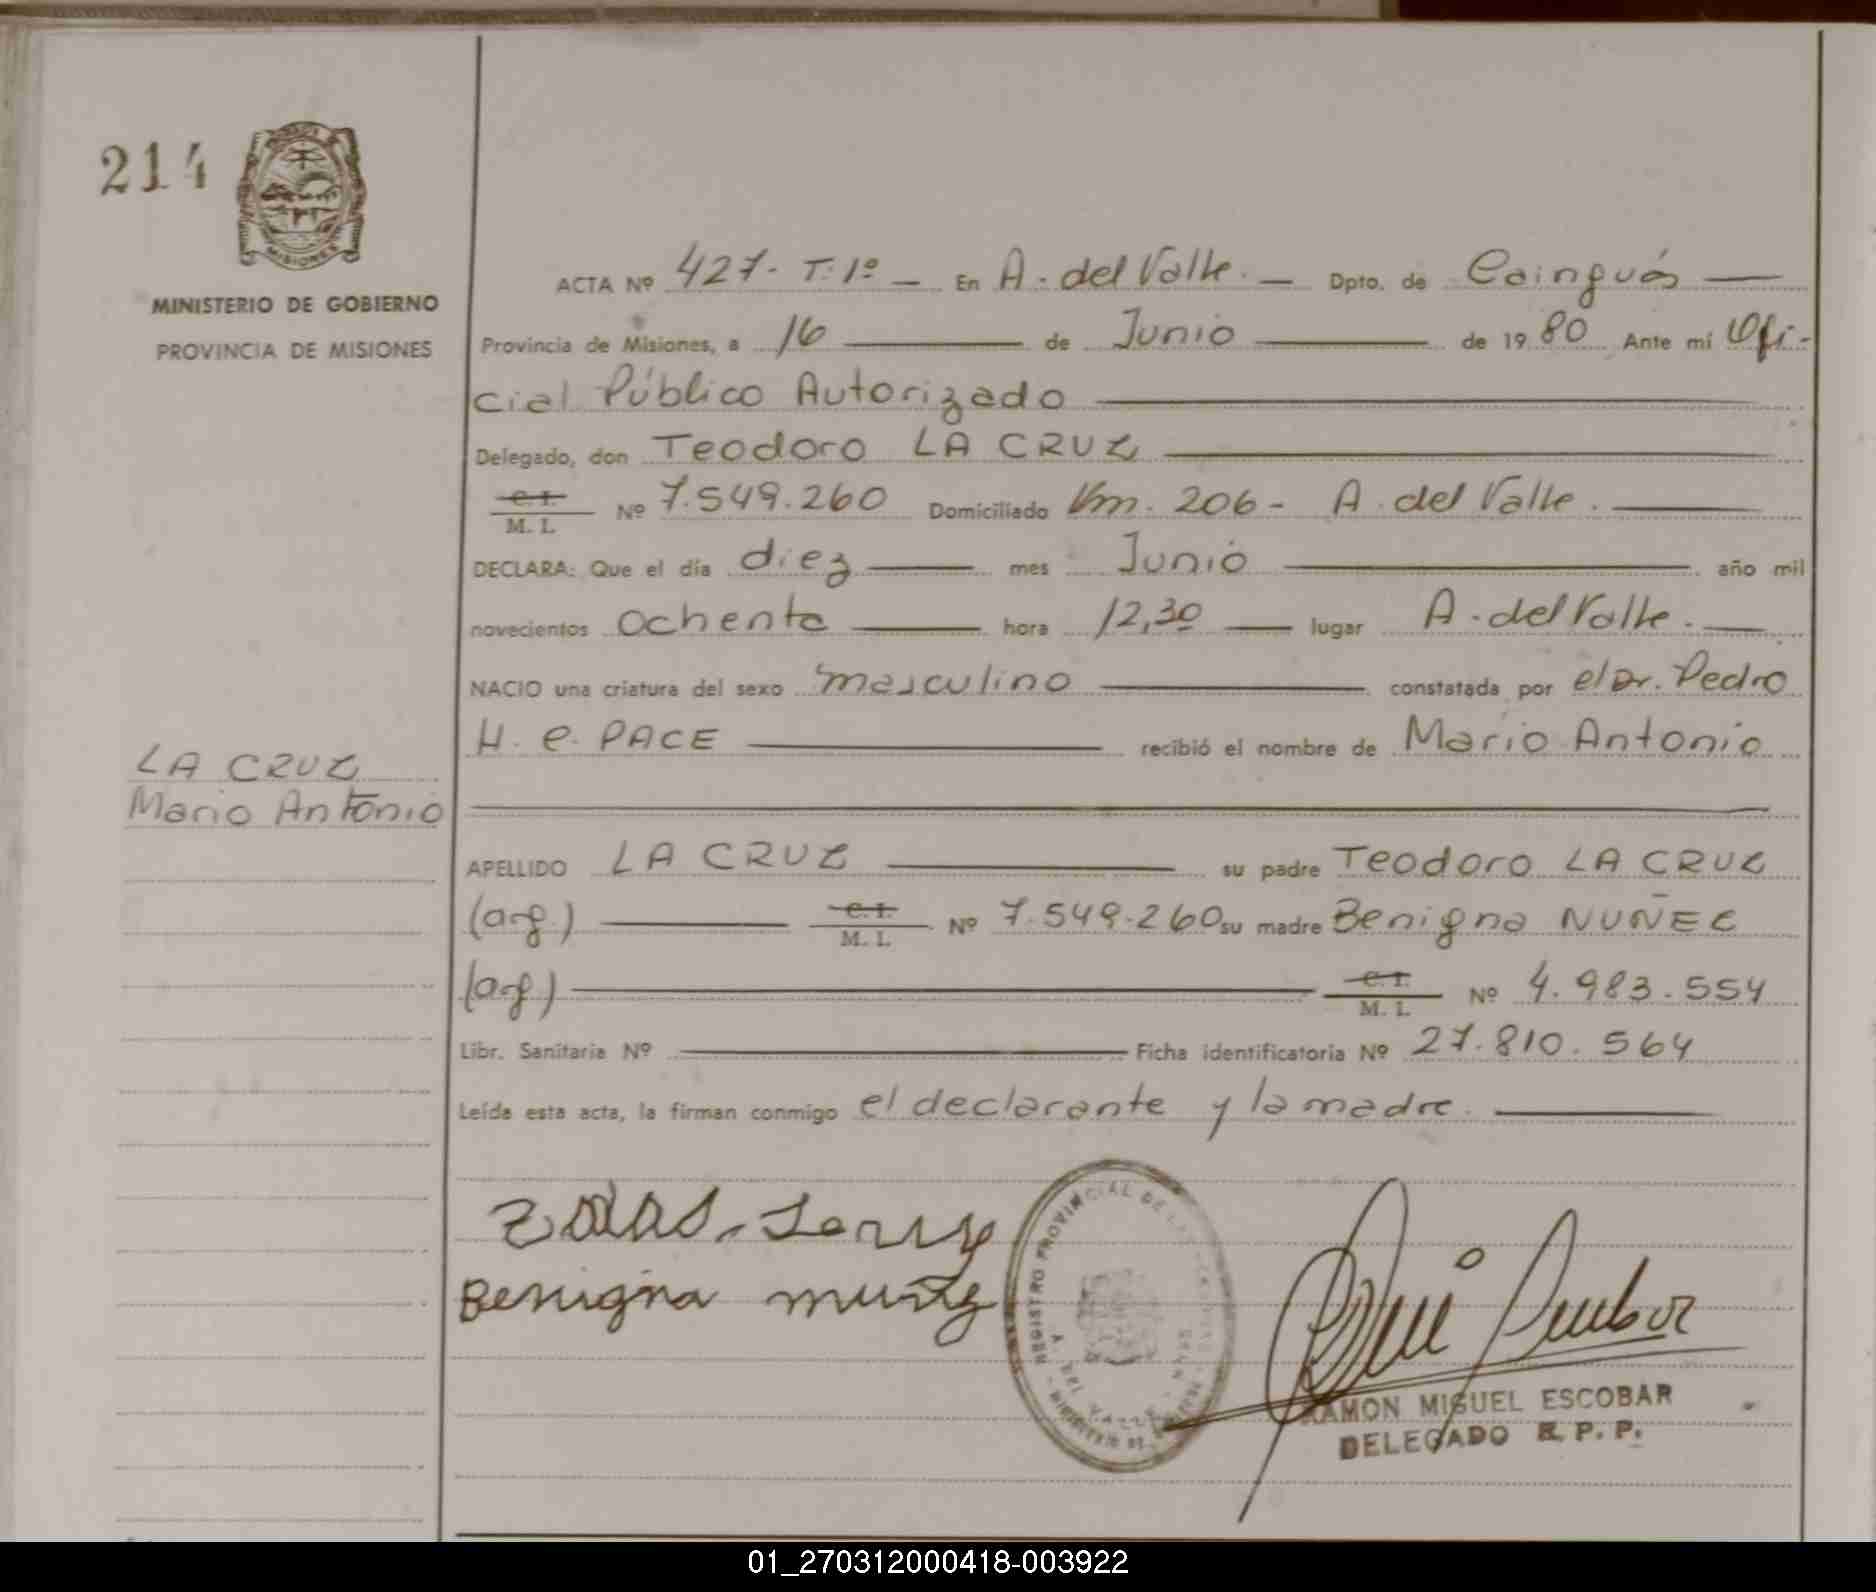 214
MISIONES
MINISTERIO DE GOBIERNO
PROVINCIA DE MISIONES
LA CRUZ
Mario Antonio
ACTA Nº 427- T. 1º - En A. del Valle. - Dpto. de Cainguás
Provincia de Misiones, a 16 de Junio de 1980 Ante mí Ofi-
cial Público Autorizado
Delegado, don Teodoro LA CRUZ
C. I. M. I. Nº 7.549.260 Domiciliado Km. 206- A. del Valle.
DECLARA: Que el día diez mes Junio año mil
novecientos ochenta hora 12,30 lugar A. del Valle.
NACIO una criatura del sexo masculino constatada por el Dr. Pedro
H. C. PACE recibió el nombre de Mario Antonio
APELLIDO LA CRUZ su padre Teodoro LA CRUZ
(arg.) C. I. M. I. Nº 7.549.260 su madre Benigna NUÑEZ
(arg.) C. I. M. I. Nº 4.983.554
Libr. Sanitaria Nº Ficha identificatoria Nº 27.810.564
Leída esta acta, la firman conmigo el declarante y la madre.
Benigna
REGISTRO PROVINCIAL DE LAS
A. DEL VALLE
RAMON MIGUEL ESCOBAR
DELEGADO R. P. P.
01_270312000418-003922